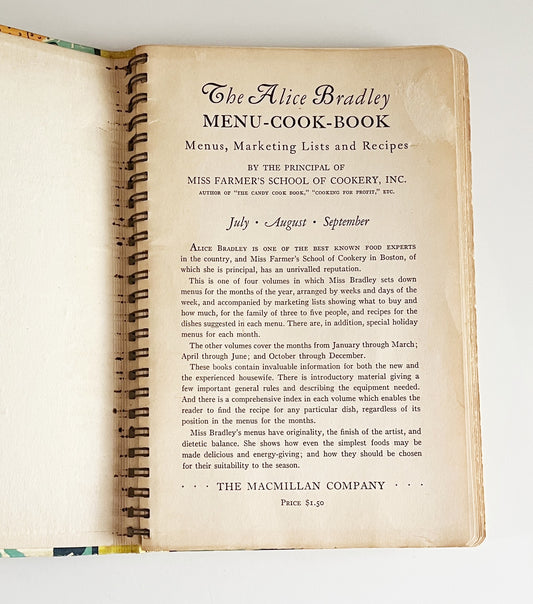 The Alice Bradley
MENU-COOK-BOOK
Menus, Marketing Lists and Recipes
BY THE PRINCIPAL OF
MISS FARMER'S SCHOOL OF COOKERY, INC.
AUTHOR OF "THE CANDY COOK BOOK," "COOKING FOR PROFIT," ETC.
July · August · September
ALICE BRADLEY IS ONE OF THE BEST KNOWN FOOD EXPERTS
in the country, and Miss Farmer's School of Cookery in Boston, of
which she is principal, has an unrivalled reputation.
This is one of four volumes in which Miss Bradley sets down
menus for the months of the year, arranged by weeks and days of the
week, and accompanied by marketing lists showing what to buy and
how much, for the family of three to five people, and recipes for the
dishes suggested in each menu. There are, in addition, special holiday
menus for each month.
The other volumes cover the months from January through March;
April through June; and October through December.
These books contain invaluable information for both the new and
the experienced housewife. There is introductory material giving a
few important general rules and describing the equipment needed.
And there is a comprehensive index in each volume which enables the
reader to find the recipe for any particular dish, regardless of its
position in the menus for the months.
Miss Bradley's menus have originality, the finish of the artist, and
dietetic balance. She shows how even the simplest foods may be
made delicious and energy-giving; and how they should be chosen
for their suitability to the season.
· · · THE MACMILLAN COMPANY · · ·
PRICE $1.50